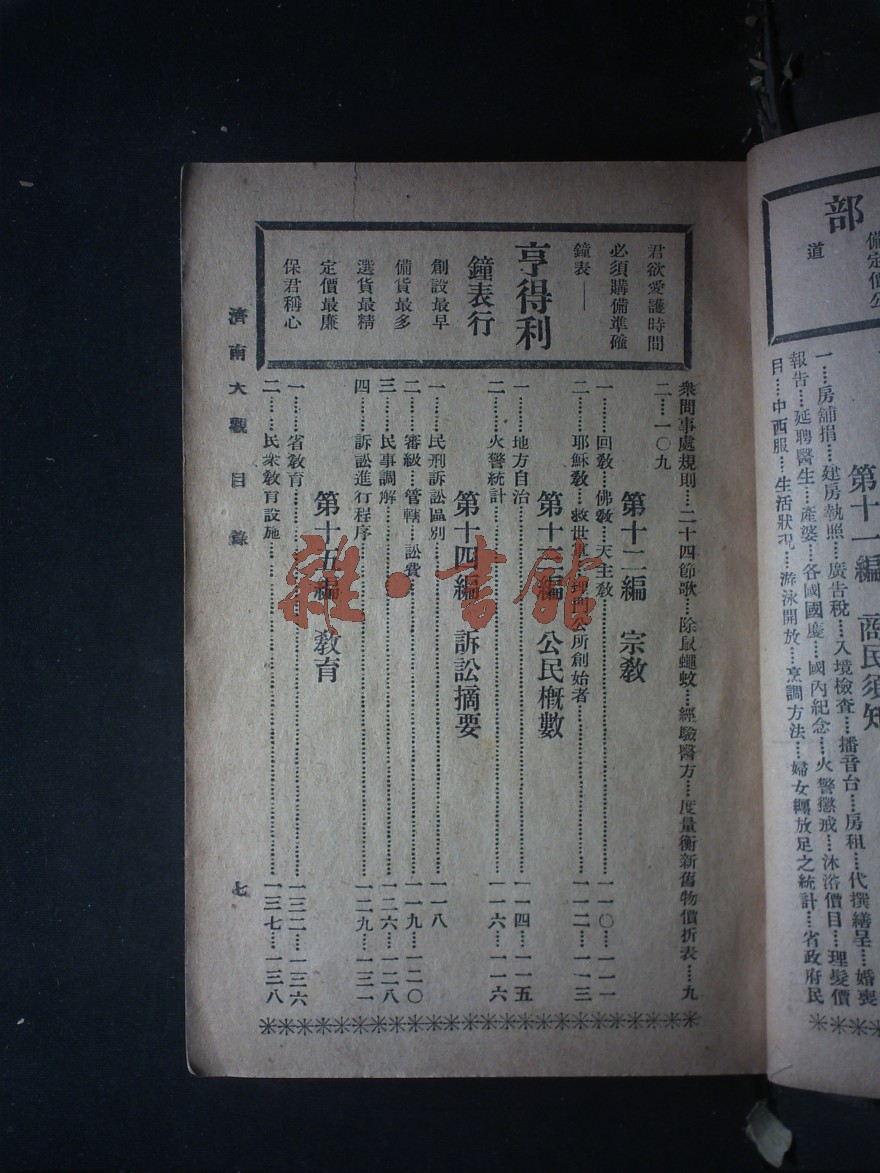 部
備定價公
道
第十一編 商民須知
一……房舖捐……建房執照……廣告稅……入境檢查……播音台……房租……代撰繕呈……婚喪
報告……延聘醫生……產婆……各國國慶……國內紀念……火警懲戒……沐浴價目……理髮價
目……中西服……生活狀況……游泳開放……烹調方法……婦女纏放足之統計……省政府民
君欲愛護時間
必須購備準確
鐘表——
亨得利
鐘表行
創設最早
備貨最多
選貨最精
定價最廉
保君稱心
衆問事處規則……二十四節歌……除鼠蠅蚊……經驗醫方……度量衡新舊物價折表……九
二……一〇九
第十二編 宗教
一……回教……佛教……天主教……一一〇……一一一
二……耶穌教……救世軍……理門公所創始者……一一二……一一三
第十三編 公民概數
一……地方自治……一一四……一一五
二……火警統計……一一六……一一六
第十四編 訴訟摘要
一……民刑訴訟區別……一一八
二……審級……管轄……訟費……一一九……一二〇
三……民事調解……一二六……一二八
四……訴訟進行程序……一二九……一三一
第十五編 教育
一……省教育……一三二……一三六
二……民衆教育設施……一三七……一三八
濟南大觀 目錄
七
雜·書館